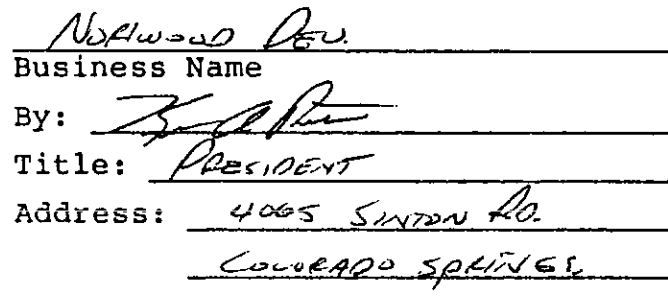 NORWOOD DEV.
Business Name
By:
Title: PRESIDENT
Address: 4065 SINTON RD.
COLORADO SPRINGS